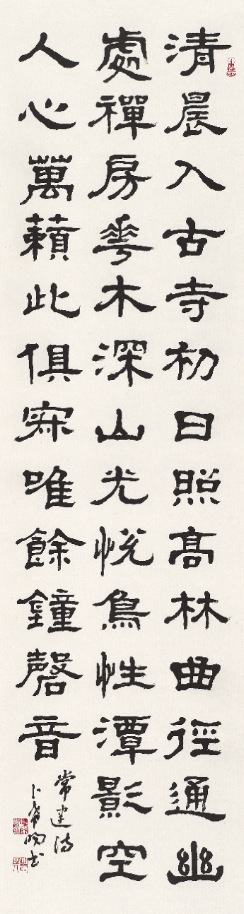 清晨入古寺初日照髙林曲徑通幽
處禪房花木深山光悅鳥性潭影空
人心萬籟此俱寂唯餘鐘磬音
常建詩
卜希暘书